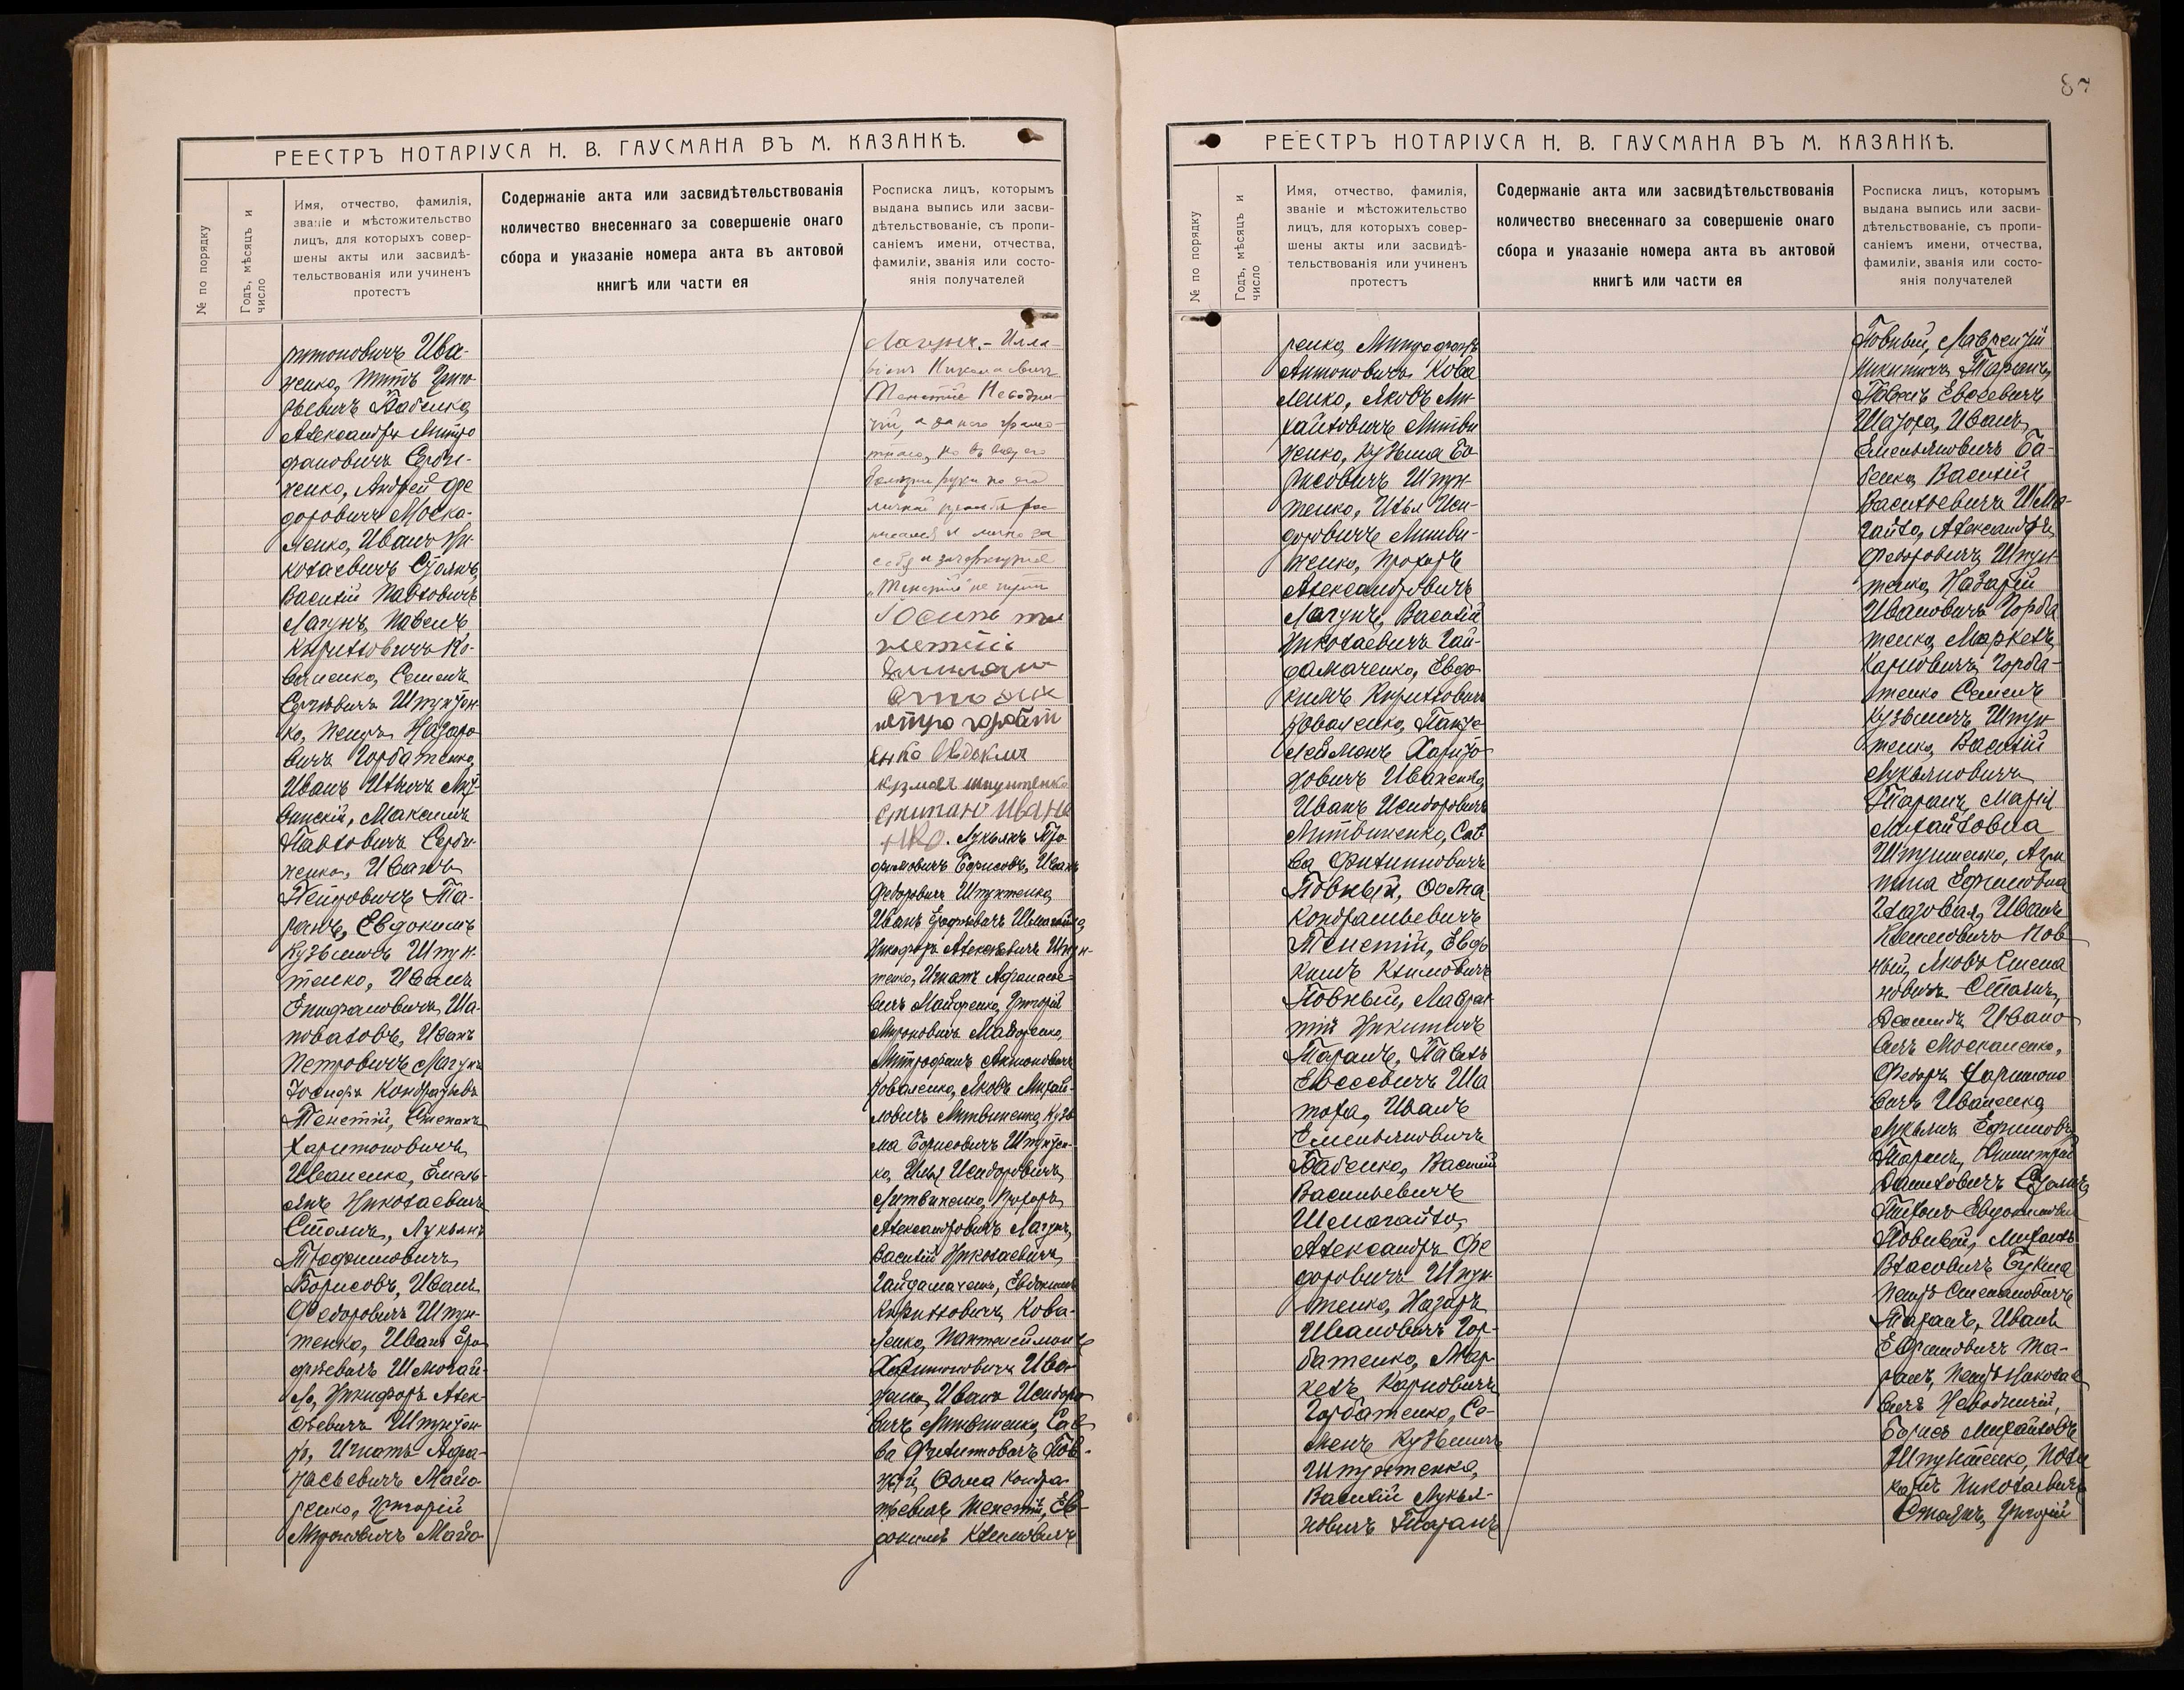 РЕЕСТРЪ НОТАРІУСА Н. В. ГАУСМАНА ВЪ М. КАЗАНКѢ.
№ по порядку
Годъ, мѣсяцъ и
число
Имя, отчество, фамилія,
званіе и мѣстожительство
лицъ, для которыхъ совер-
шены акты или засвидѣ-
тельствованія или учиненъ
протестъ
Содержаніе акта или засвидѣтельствованія
количество внесеннаго за совершеніе онаго
сбора и указаніе номера акта въ актовой
книгѣ или части ея
Росписка лицъ, которымъ
выдана выпись или засви-
дѣтельствованіе, съ пропи-
саніемъ имени, отчества,
фамиліи, званія или состо-
янія получателей
ритоновичъ Ива-
ненко, Титъ Григо-
рьевичъ Бабенко,
Александръ Митро
фановичъ Серди-
ченко, Андрей Фе
доровичъ Моска-
ленко, Иванъ Ни-
колаевичъ Стоянъ,
Василій Павловичъ
Лагунъ, Павелъ
Кирилловичъ Ко-
валенко, Семенъ
Сергѣевичъ Шпунтен-
ко, Петръ Назаро
вичъ Горбатенко,
Иванъ Ильичъ
Максимъ
Павловичъ Серди-
ченко, Иванъ
Петровичъ Та-
ранъ, Евдокимъ
Кузьмичъ Шпун-
тенко, Иванъ
Епифановичъ Ша-
поваловъ, Иванъ
Петровичъ Лагунъ
Іосифъ Кондратьевъ
Тенетій, Степанъ
Харитоновичъ
Иваненко, Емель-
янъ Николаевичъ
Стоянъ, Лукьянъ
Трофимовичъ
Борисовъ, Иванъ
Федоровичъ Шпун-
тенко, Иванъ Еро
фѣевичъ Шмогай-
ло, Никифоръ Алек-
сѣевичъ Шпунтен
ко, Игнатъ Афа-
насьевичъ Майо-
ренко, Григорій
Мироновичъ Майо-
Лагунъ. - Илла-
ріонъ Николаевичъ
Тенетій
личной просьбѣ рос
Іосипъ те
нетій
петро горбат
енко Євдоким
кузмич шпунтенко
Степанъ Ивана
нко. Лукьянъ Тро
фимовичъ Борисовъ, Иванъ
Федоровичъ Шпунтенко,
Иванъ Ерофѣевичъ Шмогайло,
Никифоръ Алексѣевичъ Шпун-
тенко, Игнатъ Афанасье-
вичъ Майоренко, Григорій
Мироновичъ Майоренко,
Митрофанъ Антоновичъ
Коваленко, Яковъ Михай-
ловичъ Литвиненко, Кузь
ма Борисовичъ Шпунтен-
ко, Илья Исидоровичъ
Литвиненко, Прохоръ
Александровичъ Лагунъ,
Василій Николаевичъ
Гайдамаченко, Евдокимъ
Кирилловичъ Кова-
ленко, Пантелеймонъ
Харитоновичъ Ива-
ненко, Иванъ Исидоро
вичъ Литвиненко, Сав
ва Филипповичъ Пов-
ный, Ѳома Кондра
тьевичъ Тенетій, Ев
докимъ Климовичъ
87
РЕЕСТРЪ НОТАРІУСА Н. В. ГАУСМАНА ВЪ М. КАЗАНКѢ.
№ по порядку
Годъ, мѣсяцъ и
число
Имя, отчество, фамилія,
званіе и мѣстожительство
лицъ, для которыхъ совер-
шены акты или засвидѣ-
тельствованія или учиненъ
протестъ
Содержаніе акта или засвидѣтельствованія
количество внесеннаго за совершеніе онаго
сбора и указаніе номера акта въ актовой
книгѣ или части ея
Росписка лицъ, которымъ
выдана выпись или засви-
дѣтельствованіе, съ пропи-
саніемъ имени, отчества,
фамиліи, званія или состо-
янія получателей
ренко, Митрофанъ
Антоновичъ Кова
ленко, Яковъ Ми-
хайловичъ Литви
ненко, Кузьма Бо
рисовичъ Шпун-
тенко, Илья Иси-
доровичъ Литви-
ненко, Прохоръ
Александровичъ
Лагунъ, Василій
Николаевичъ Гай-
дамаченко, Евдо-
кимъ Кирилловичъ
Коваленко, Панте
леймонъ Харито-
новичъ Иваненко,
Иванъ Исидоровичъ
Литвиненко, Сав
ва Филипповичъ
Повный, Ѳома
Кондратьевичъ
Тенетій, Евдо
кимъ Климовичъ
Повный, Лаврен
тій Никитичъ
Таранъ, Павелъ
Евсеевичъ Ша
тоха, Иванъ
Емельяновичъ
Бабенко, Василій
Васильевичъ
Шмогайло,
Александръ Фе
доровичъ Шпун-
тенко, Назаръ
Ивановичъ Гор-
батенко, Мар-
келъ Карповичъ
Горбатенко, Се-
менъ Кузьмичъ
Шпунтенко,
Василій Лукья-
новичъ Таранъ
Повный, Лаврентій
Никитичъ Таранъ,
Павелъ Евсеевичъ
Шатоха, Иванъ
Емельяновичъ Ба-
бенко, Василій
Васильевичъ Шмо-
гайло, Александръ
Федоровичъ Шпун-
тенко, Назарій
Ивановичъ Горба
тенко, Маркелъ
Карповичъ Горба-
тенко Семенъ
Кузьмичъ Шпун-
тенко, Василій
Лукьяновичъ
Таранъ, Марія
Михайловна
Агри
пина Ефимовна
Иванъ
Климовичъ Пов-
ный, Яковъ Степа
новичъ Стоянъ,
Ивано
вичъ Москаленко,
Федоръ Харитоно
вичъ Иваненко,
Лукьянъ Ефимовъ
Таранъ, Димитрій
Даниловичъ Стоянъ,
Евдокимовичъ
Повный, Михаилъ
Власовичъ Букша
Петръ Степановичъ
Таранъ, Иванъ
Ефимовичъ Та-
ранъ, Петръ Николае
вичъ Неводничій,
Борисъ Михайловъ
Шпунтенко, Поли
карпъ Николаевичъ
Стоянъ, Григорій